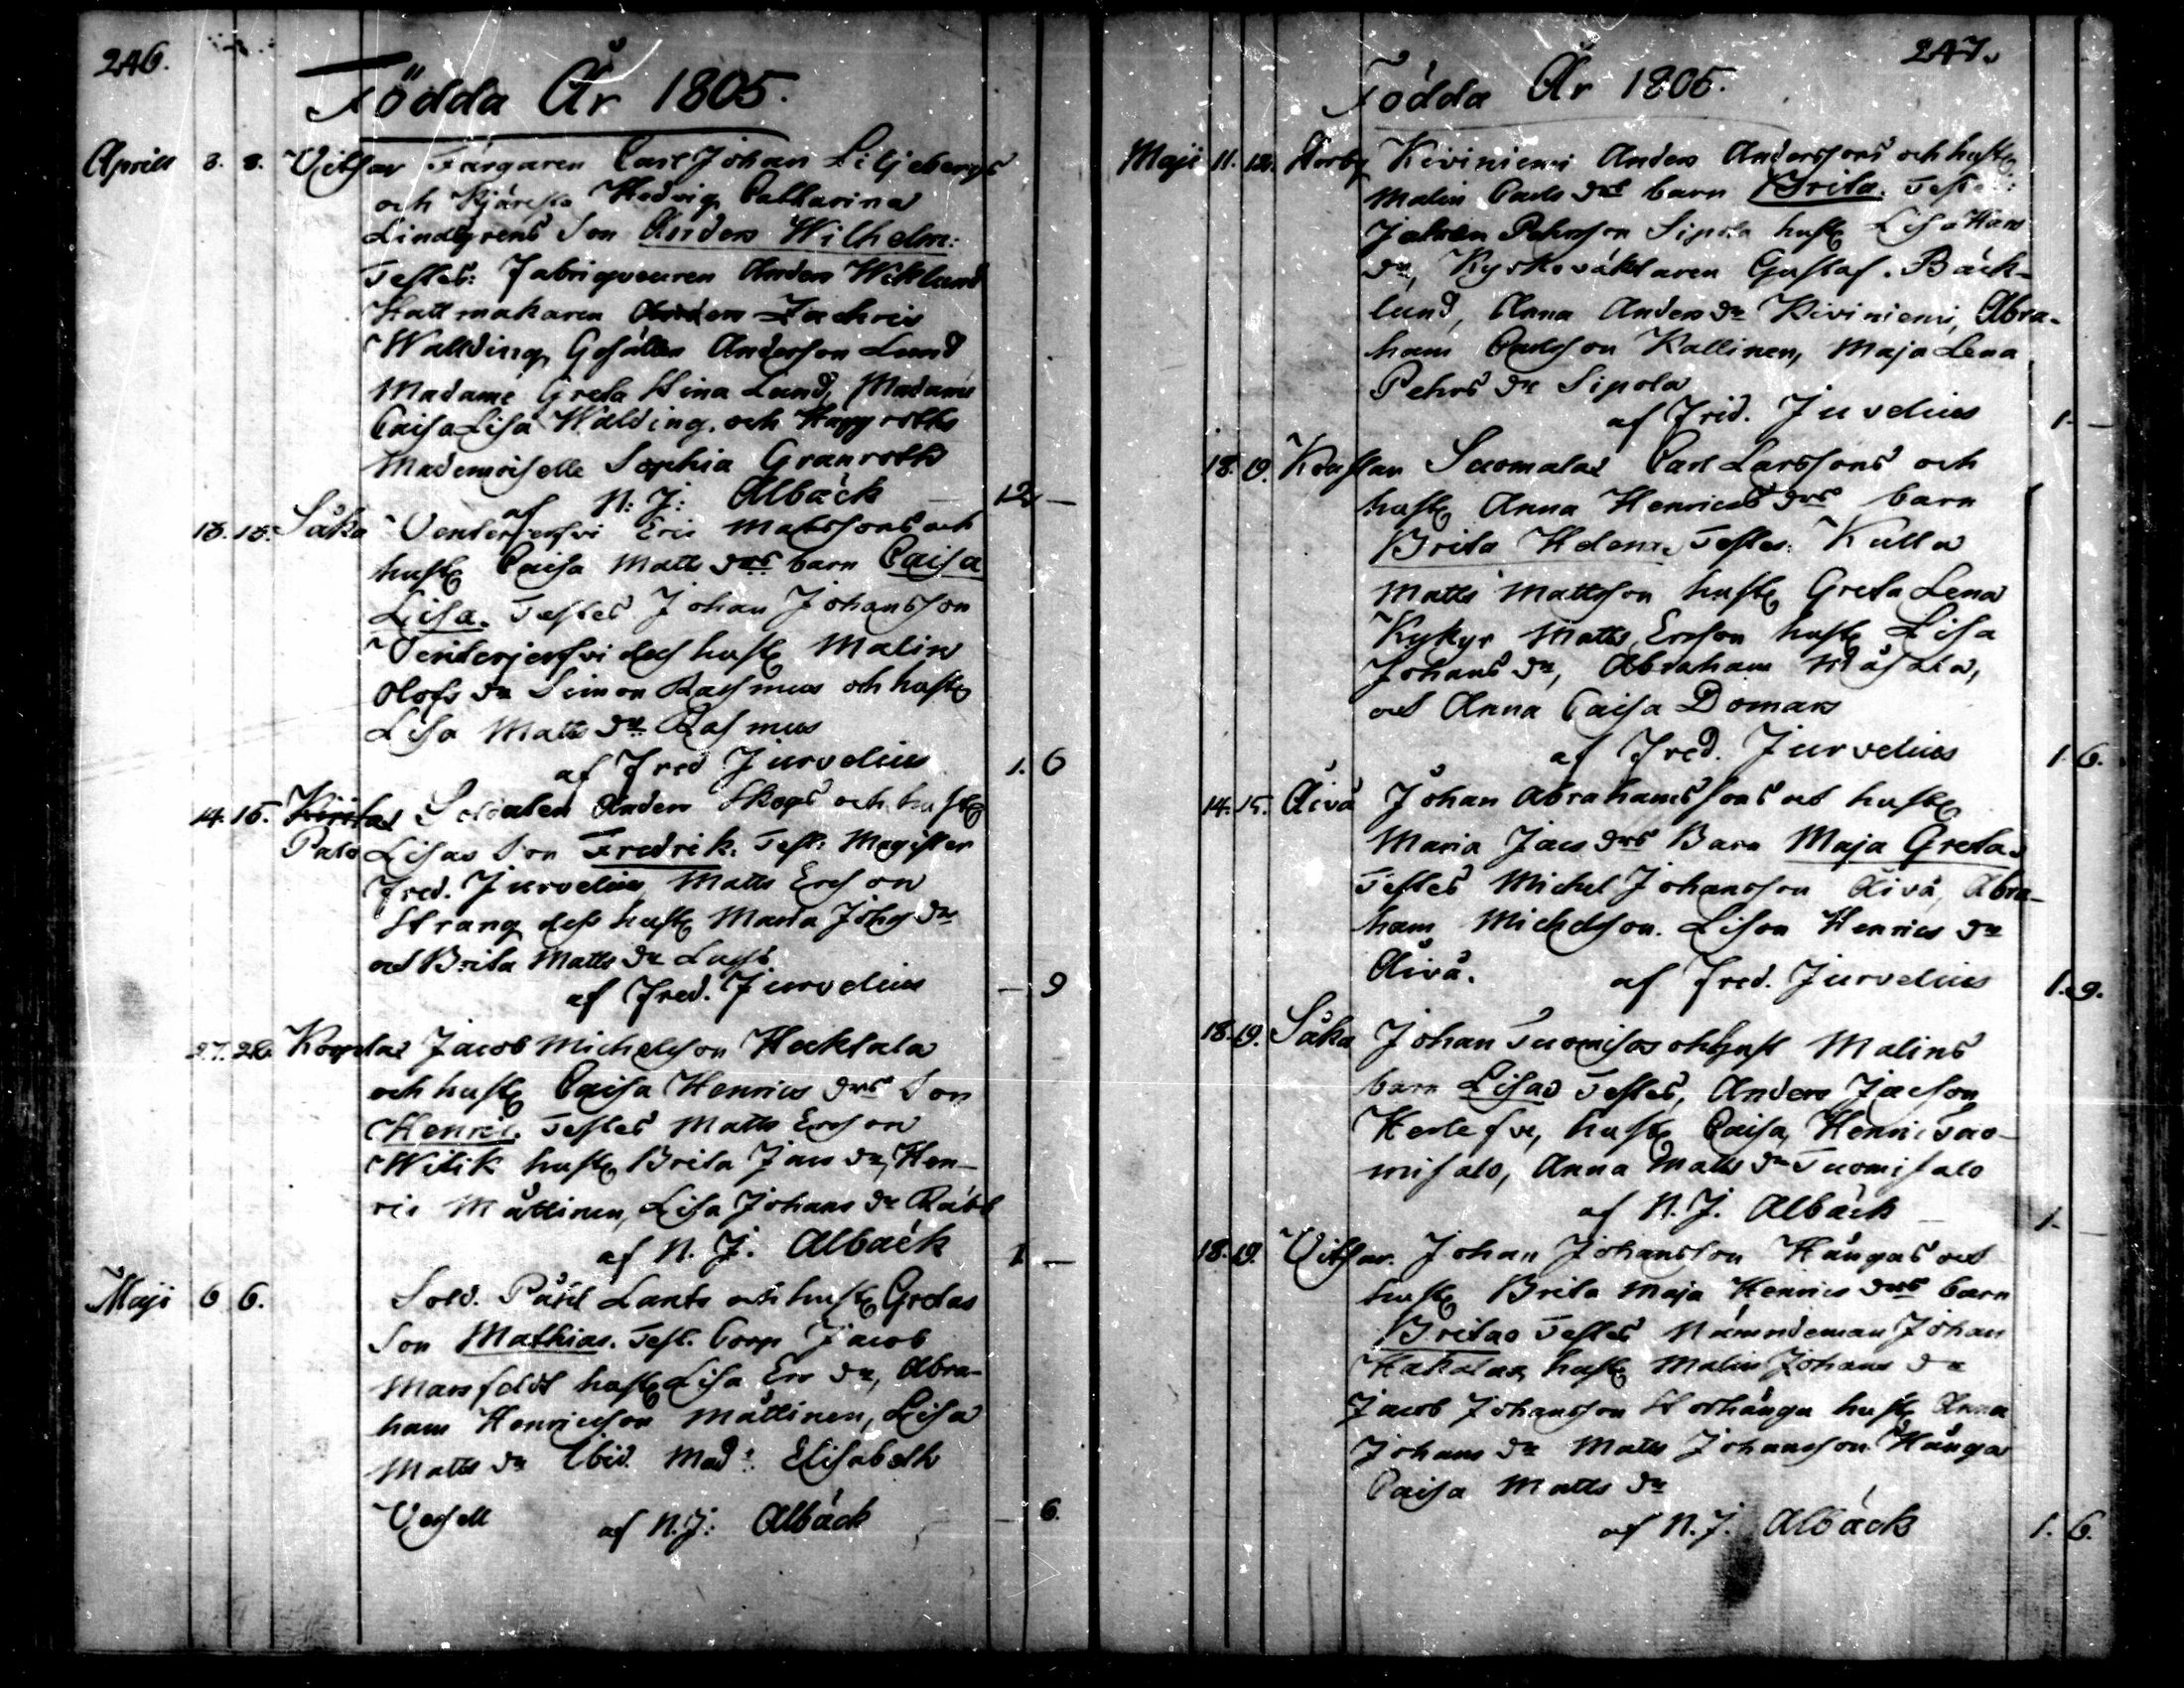 246.
Födda År 1805.
Aprill 8. 8. Vitsar Färgaren Carl Johan Liljebergs
och Kjäresta Hedvig Catharina
Lindgrens Son Anders Wilhelm:
Testes: Fabriqueuren Anders Wiklund
Hattmakaren Zachris
Wallding, Gesällen Anderson Lund
Madame Greta Stina Lund, Madame
Caisa Lisa Walding, och
Mademoiselle Sophia Granroth
af N: J: Albäck 12 —
13. 13. Såka Ventersersvi Eric Matssons och
hust Caisa Matts drs barn Caisa
Lisa. Testes Johan Johansson
Ventersjersvi dess hust Malin
Olofs dr Simon Rasmus och hust
Lisa Matts dr Rasmus
af Fred Jurvelius 1. 6
14. 15. Soldaten Anders Skogs och hust
Palo Lisas Son Fredrik. Test. Magister
Fred. Jurvelius Matts Erson
Strang dess hust Maria Johs dr
och Brita Matts dr
af Fred. Jurvelius — 9
27. 28. Korplax Jacob Michelsson Hucktala
och hust Caisa Henrics drs Son
Henric. Testes Matts Erson
Witik hust Brita Jacs dr, Hen-
ric Måttinen, Lisa Johans dr
af N. J. Albäck 1 —
Maji 6 6. Sold. Påhl Lants och hust Gretas
Son Mathias. Test. Corp Jacob
Mansfeldt hust Lisa Ers dr, Abra-
ham Henricsson Måttinen, Lisa
Matts dr Ibid. Mad: Elisabeth
Vessell af N. J: Albäck — 6.
247.
Födda År 1805.
Maji 11. 12. Kiviniemi Anders Anderssons och hust
Malin Carls drs barn Brita. Teste:
Johan Pehrsson Sipola hust Lisa Hans
dr, Kyrkováktaren Gustaf. Bäck-
lund, Anna Anders dr Kiviniemi, Abra-
ham Carlsson Kallinen, Maja Lena
Pehrs dr Sipola
af Frid. Juvelius 1. —
18. 19. Suomalas Carl Larssons och
hust Anna Henrics drs barn
Brita Helena, Testes: Kulla
Matts Mattsson hust Greta Lena
Kykyr Matts, Ersson hust Lisa
Johans dr, Abraham
och Anna Caisa Domars
af Fred. Jurvelius 1. 6.
14. 15. Åivå Johan Abrahamssons och hust
Maria Jacs drs Barn Maja Greta.
Testes Michel Johansson Åivå, Abra-
ham Michelsson. Lison Henrics dr
Åivå. af Fred. Jurvelius 1. 9.
18. 19. Såka Johan Tuomisas och hust Malins
barn Lisas Testes, Anders Jacson
hust Caisa, Henric Tuo-
misalo, Anna Matts dr Tuomisalo
af N. J. Albäck 1. —
18. 19. Vitsar. Johan Johansson Hångas och
hust Brita Maja Henrics drs barn
Britas Testes Nämndeman Johan
Hakalax, hust Malin Johans dr
Jacob Johansson Storhånga hust Anna
Johans dr Matts Johansson Hånga
Caisa Matts dr
af N. J. Albäck 1. 6.